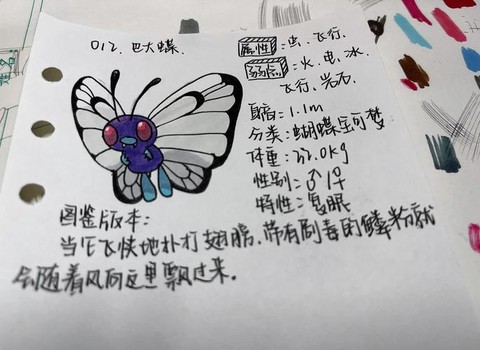 012. 巴大蝶.
属性:虫、飞行.
弱点:火、电、冰、
飞行、岩石.
身高:1.1m
分类:蝴蝶宝可梦
体重:32.0kg
性别:♂ 1♀
特性:复眠
图鉴版本:
当它飞快地扑打翅膀.带有剧毒的鳞粉就
会随着风向这里飘过来.